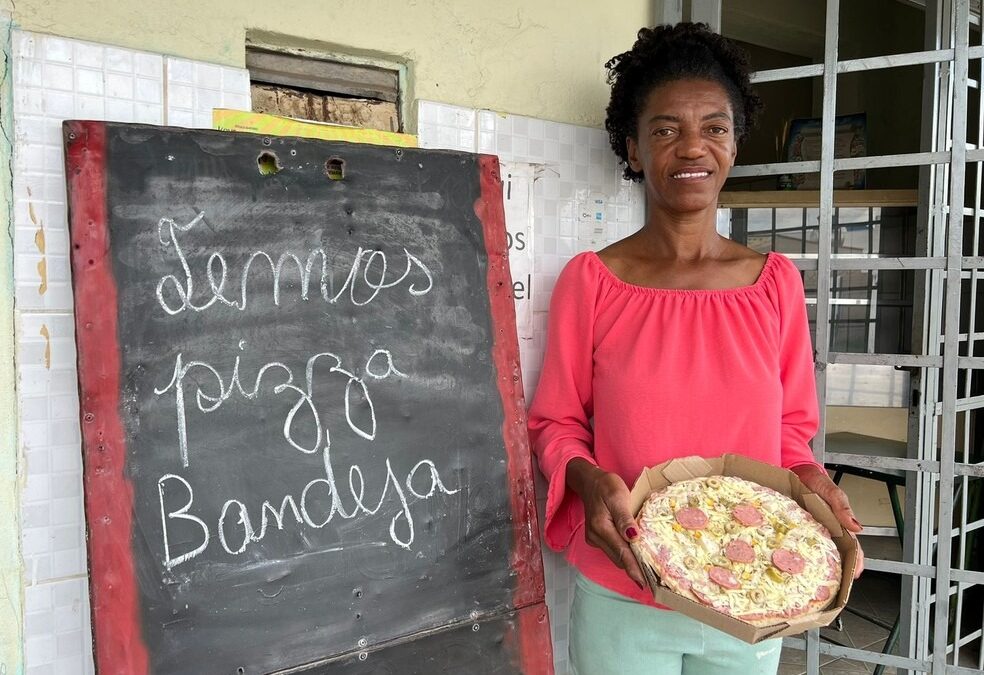 Temos
pizza
Bandeja
os
el